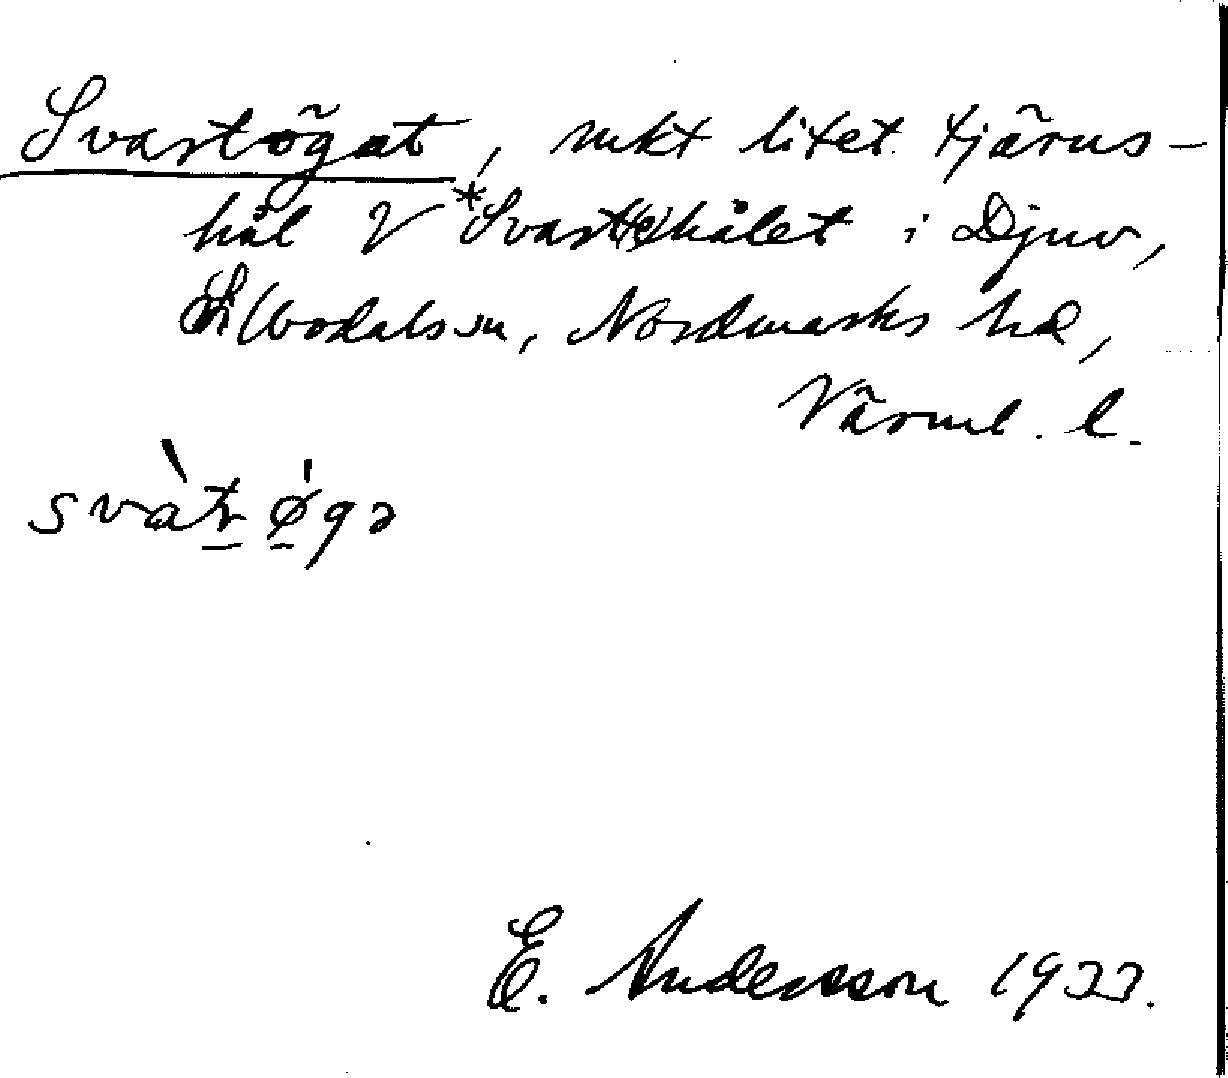 Svartögat, mkt litet tjärns-
hål V *Svart(e)hålet i Djuv,
Silbodals sn, Nordmarks hd,
Värml. l.
svàt ø̀gə
E. Andersson 1933.